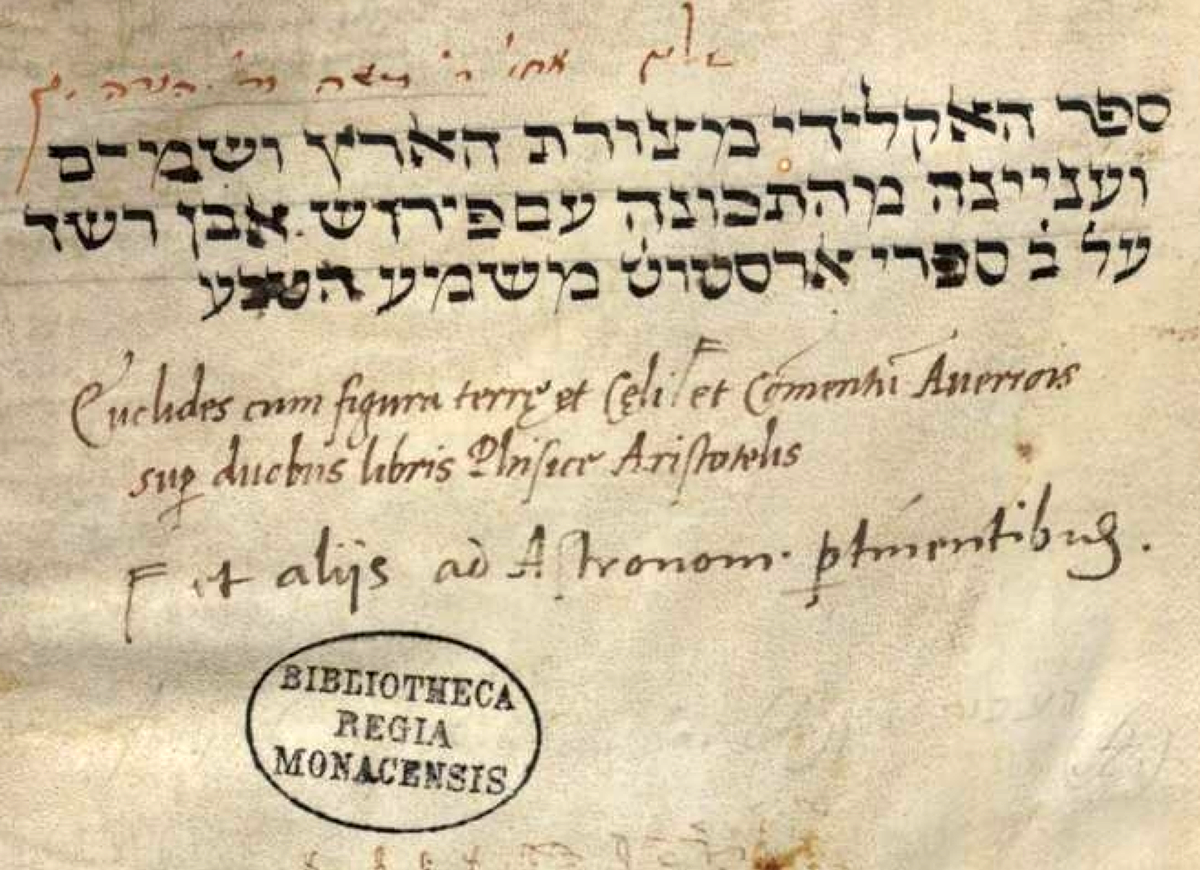 ספר האקלידי מצורת הארץ ושמים
ועניינה מהתכונה עם פירוש אבן רשד
על ב ספרי ארסטוט משמיע הטבע
Euclides cum figura terrę et Cęli F et Cōmentū Auerrois
suꝑ duobus libris Phisice Aristotelis
F et aliis ad Astronom. ꝑtinentibus.
BIBLIOTHECA
REGIA
MONACENSIS